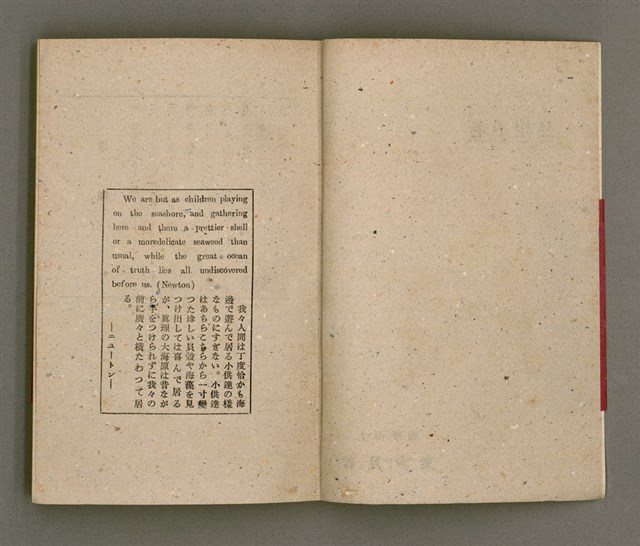 We are but as children playing
on the seashore, and gathering
here and there a prettier shell
or a moredelicate seaweed than
usual, while the great ocean
of truth lies all undiscovered
before us. (Newton)
我々人間は丁度恰かも海
邊で遊んで居る小供達の樣
なものにすぎない。小供達
はあちらこちらから一寸變
つた珍しい貝殼や海藻を見
つけ出しては喜んで居る
が、眞理の大海原は昔なが
ら手をつけられずに我々の
前に廣々と橫たわつて居
る。
―ニュートン―